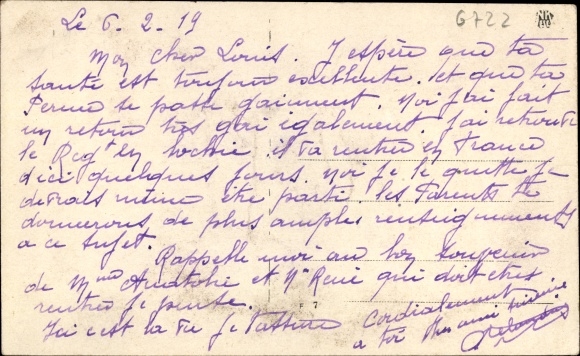 Le 6. 2. 19
6722
Mon cher Louis. J'espère que ta
santé est toujours excellente. et que ta
Perme se passe gaiment. Moi j'ai fait
un retour très gai également. J'ai retrouvé
le Regt en il va rentrer en France
d'ici quelques jours. Moi je le quitte je
devrais même être parti. les Parents te
donnerons de plus amples renseignements
a ce sujet.
Rappelle moi au bon souvenir
de Mme et Mr René qui doit être
rentrer je pense.
Ici c'est la vie je t'assure
Cordialement
a toi ton ami
F 7